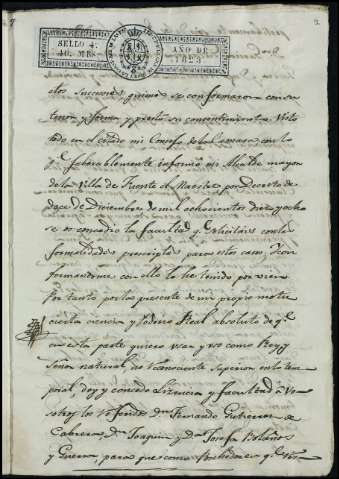 SELLO 4.º
40. MRS.
AÑO DE
1823
2
se conformaron con su
tenor y forma, y prestó su consentimiento. Visto
todo en el citado mi Consejo Real
q.e favorablemente informó mi Alcalde mayor
de la Villa de Fuente el Maestre, por Decreto de
doce de Diciembre de mil ochocientos diez y ocho
se os concedió la facultad q.e solicitais con las
formalidades prescriptas para estos casos. Y con
formandome con ello lo he tenido por vien.
Por tanto por la presente de mi propio motu
cierta ciencia y poderio Real absoluto de q.e
en esta parte quiero usar y uso como Rey y
Señor natural, no reconociente Superior en lo tem
poral, doy y concedo Licencia y facultad á vo
sotros los referidos Dn. Fernando Gutierrez de
Cabrera, Dn. Joaquin y Dn. Josefa Bolaños
y Guerra, para que como Poseedores q.e